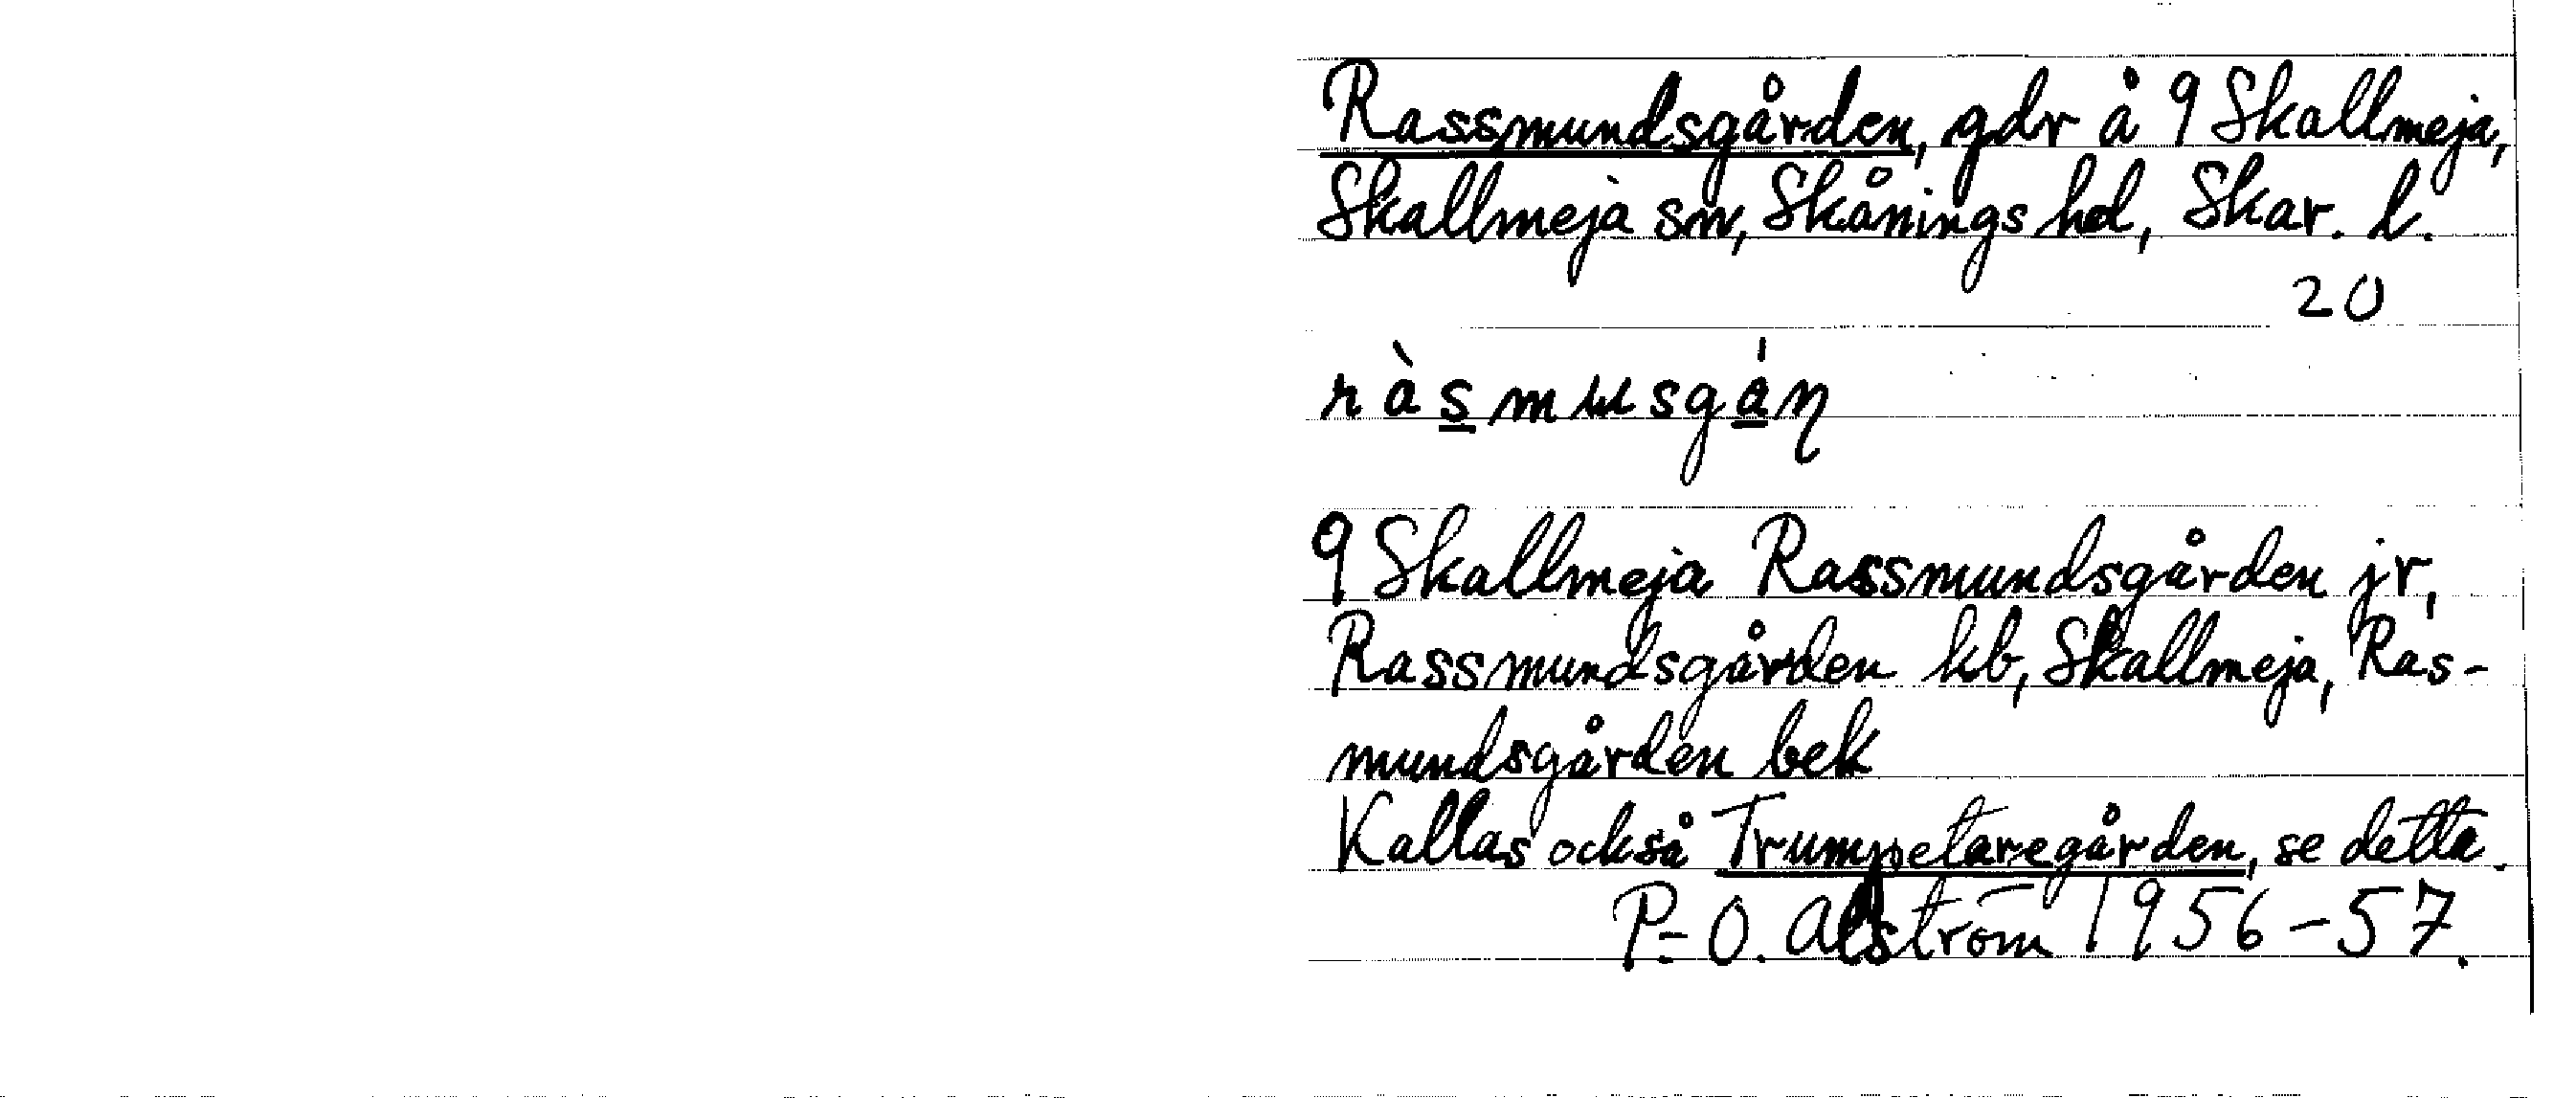 Rassmundsgården, gdr å 9 Skallmeja,
Skallmeja sn, Skånings hd, Skar. l.
20
ràs̲musgá̲ŋ
9 Skallmeja Rassmundsgården jr,
Rassmundsgården kb, Skallmeja, Ras-
mundsgården bek
Kallas också Trumpetaregården, se detta.
P-O. Alström 1956-57.